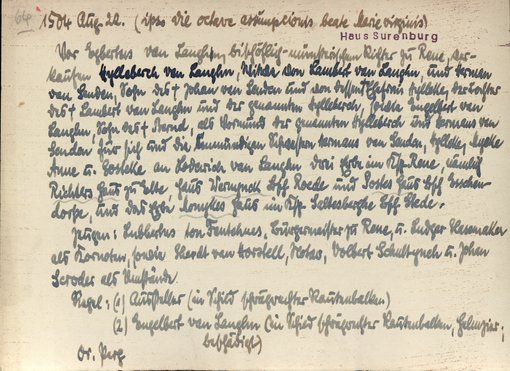 64
1504 Aug. 22. (ipso die octave assumpcionis beate Marie virginis)
Haus Surenburg
Vor Egbertus van Langhen bischöflich-münsterischen Richter zu Rene, ver-
kaufen Hylleberch van Langhen, Witwe von Lambert van Langhen, und Herman
van Senden, Sohn des † Johan van Senden und von dessen Hylleke, Tochter
des † Lambert van Langhen und der genannten Hylleberch, sowie Engelbert van
Langhen, Sohn des † Bernd, als Vormund der genannten Hylleberch und Hermans van
Senden für sich und die unmündigen Schwestern Hermans van Senden, Hylleke,
Anne u. Gosteke an Roderich van Langhen drei Erbe im Ksp. Rene, nämlich
Richters Haus zu Elte, Haus Bff. Rode und Jostes Haus Bff.
dorpe, und das Erbe Haus im Ksp. Sellesberghe Bff. Stede.
Zeugen: Lubbertus ton, Bürgermeister zu Rene, u. Rudger
als Kornoten, sowie Everdt van Horstell, Notar, Volbert Schultynch u. Johan
Scroder als Umstände.
Siegel: (1) Aussteller (im Schild schrägrechter Rautenbalken)
(2) Engelbert van Langhen (im Schild schrägrechter Rautenbalken, Helmzier;
beschädigt)
Or. Perg.